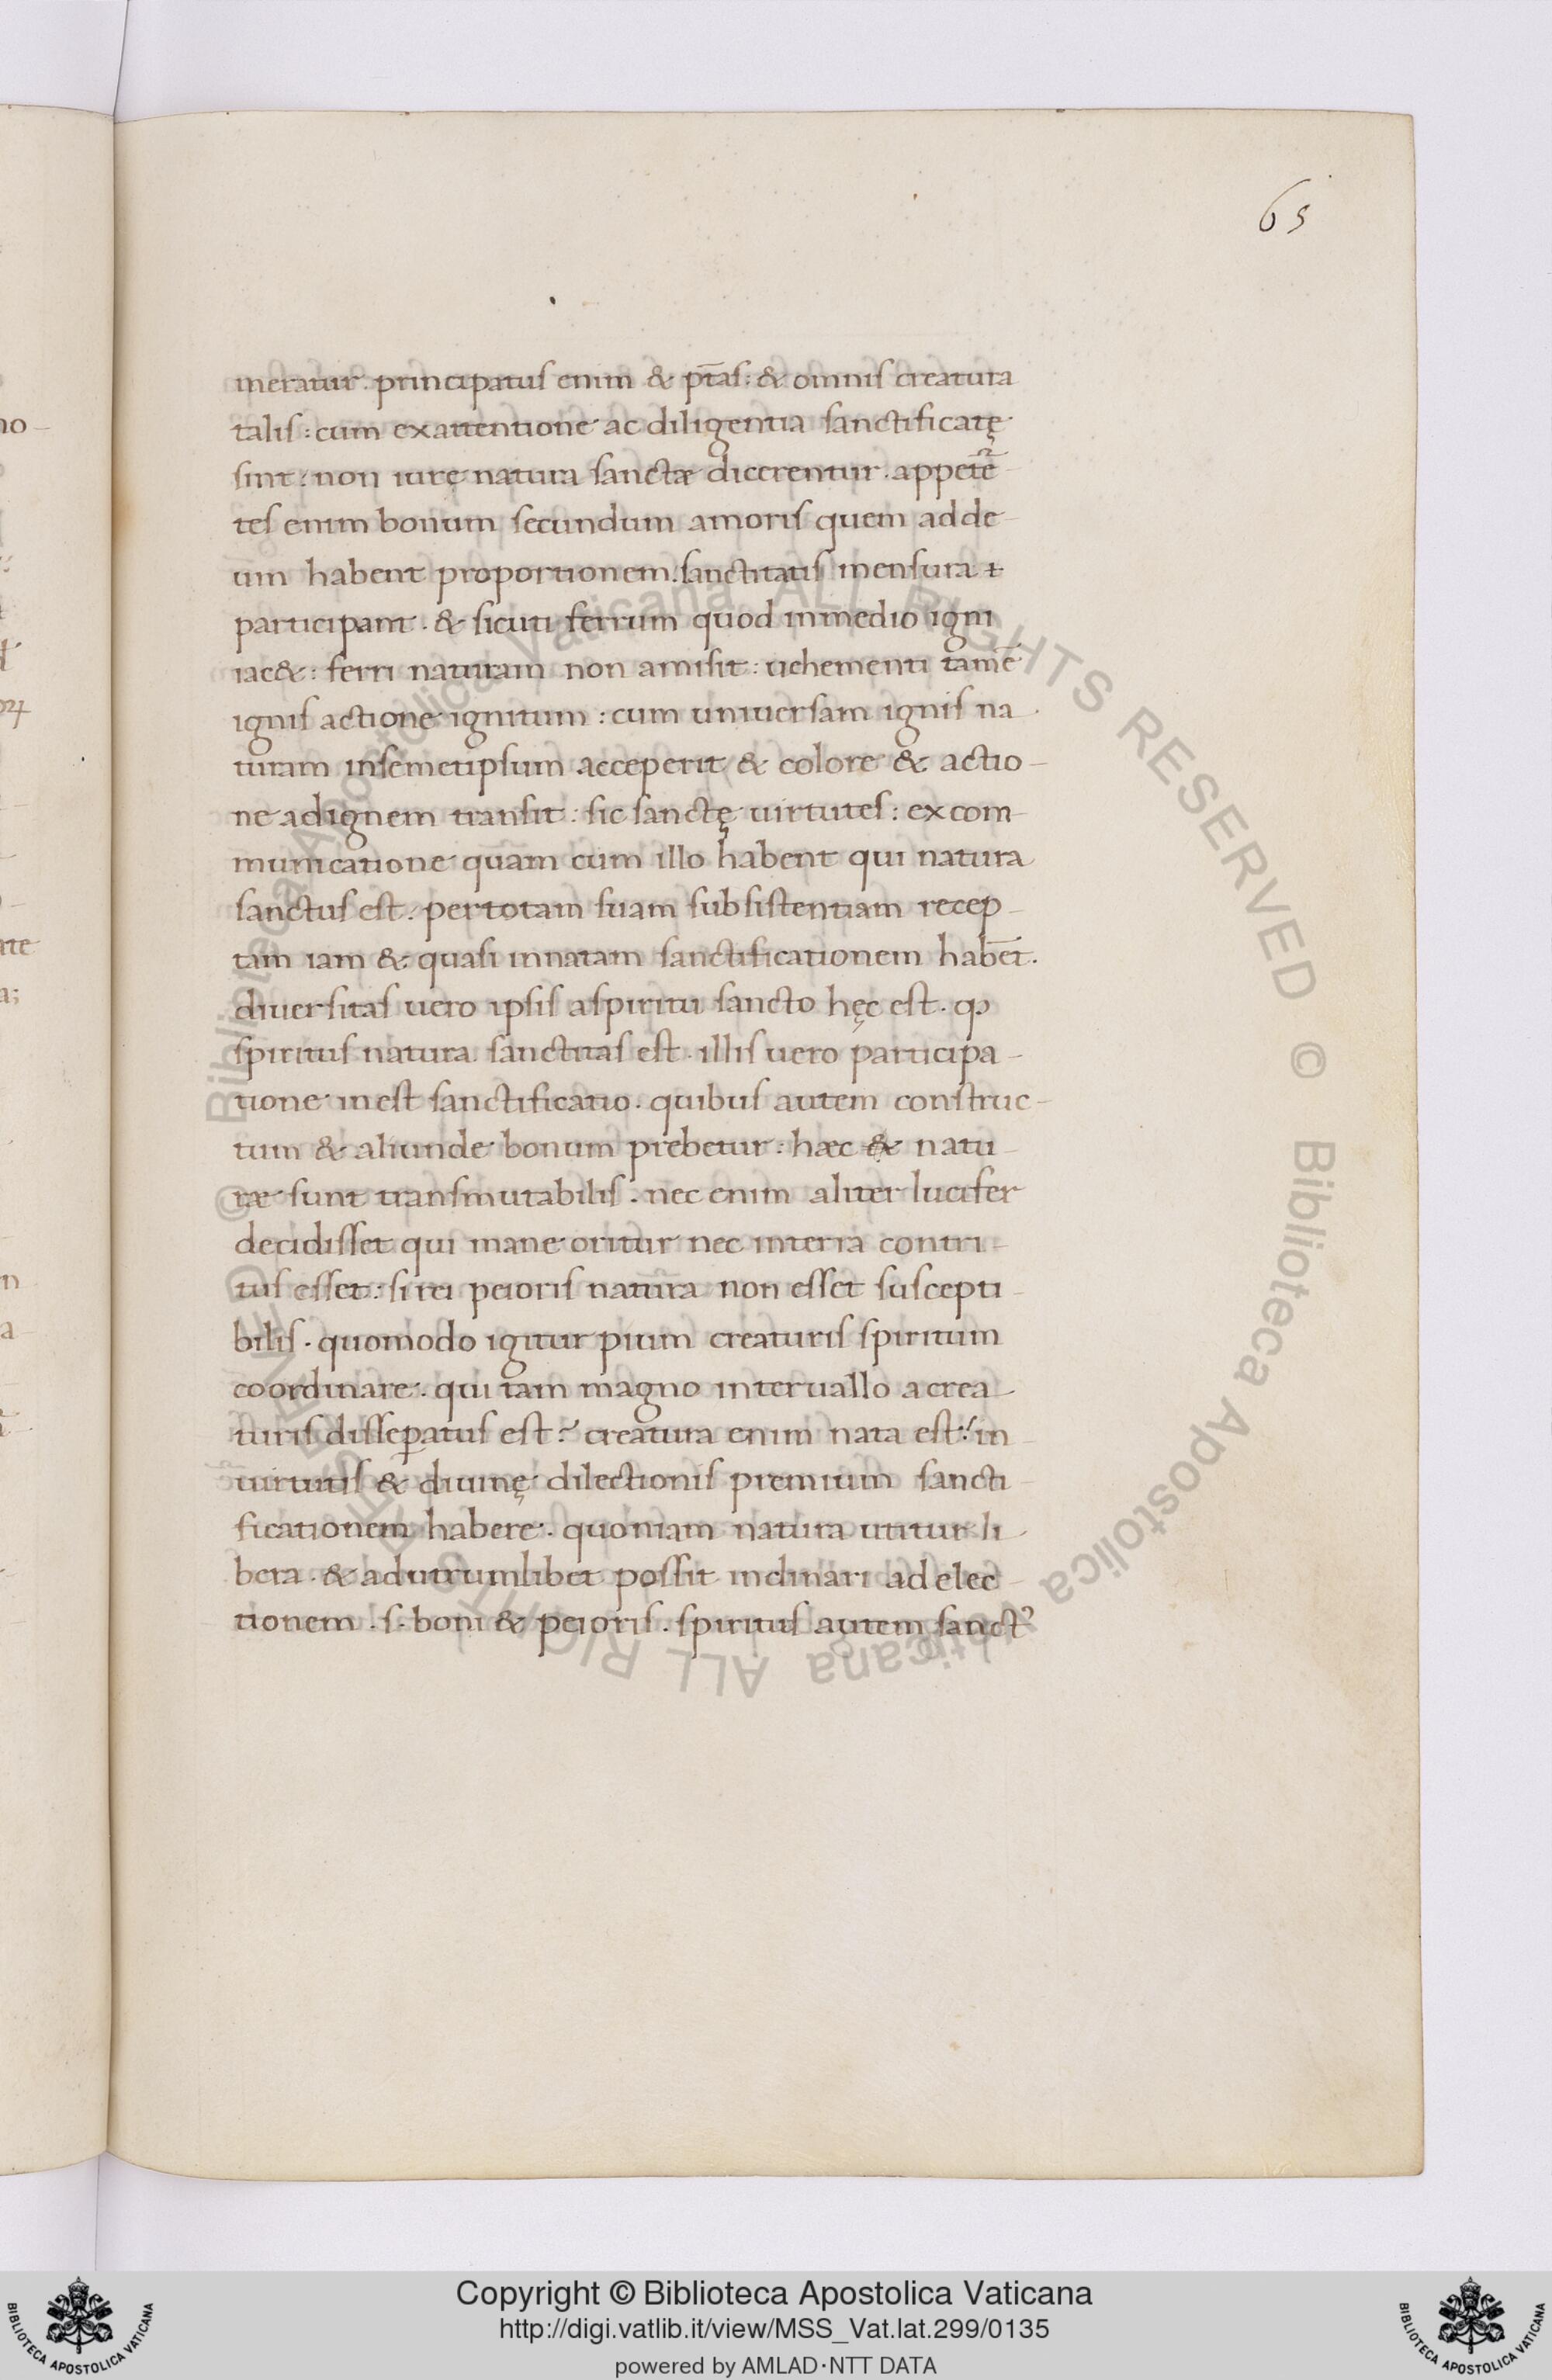 65
meratur. principatus enim & ptãs: & omnis creatura
talis: cum exattentione ac diligentia sanctificatę
sint: non iurę natura sanctæ dicerentur. appetẽ
tes enim bonum secundum amoris quem adde
um habent proportionem. sanctitatis mensura &
participant. & sicuti ferrum quod inmedio igni
iac&: ferri naturam non amisit: uehementi tamẽ
ignis actione ignitum: cum uniuersam ignis na
turam insemetipsum acceperit & colore & actio-
ne adignem transit: sic sanctę uirtutes: excom-
municatione quam cum illo habent qui natura
sanctus est. pertotam suam subsistentiam recep-
tam iam & quasi innatam sanctificationem habẽt.
diuersitas uero ipsis aspiritu sancto hęc est. qͻ
spiritus natura sanctitas est. illis uero participa-
tione inest sanctificatio. quibus autem construc-
tum & aliunde bonum prebetur: hæc & natu-
ræ sunt transmutabilis. nec enim aliter lucifer
decidisset qui mane oritur nec interra contri-
tus esset: si rei peioris natura non esset suscepti-
bilis. quomodo igitur pium creaturis spiritum
coordinare. qui tam magno interuallo acrea-
turis disseꝑatus est? creatura enim nata est: in
uirtutis & diuinę dilectionis premium sancti-
ficationem habere. quoniam natura utitur li
bera. & adutrumlibet possit inclinari ad elec-
tionem .s. boni & peioris. spiritus autem sanctꝰ
© Biblioteca Apostolica Vaticana ALL RIGHTS RESERVED © Biblioteca Apostolica Vaticana ALL RIGHTS RESERVED
Copyright © Biblioteca Apostolica Vaticana
http://digi.vatlib.it/view/MSS_Vat.lat.299/0135
powered by AMLAD·NTT DATA
BIBLIOTECA APOSTOLICA VATICANA
BIBLIOTECA APOSTOLICA VATICANA